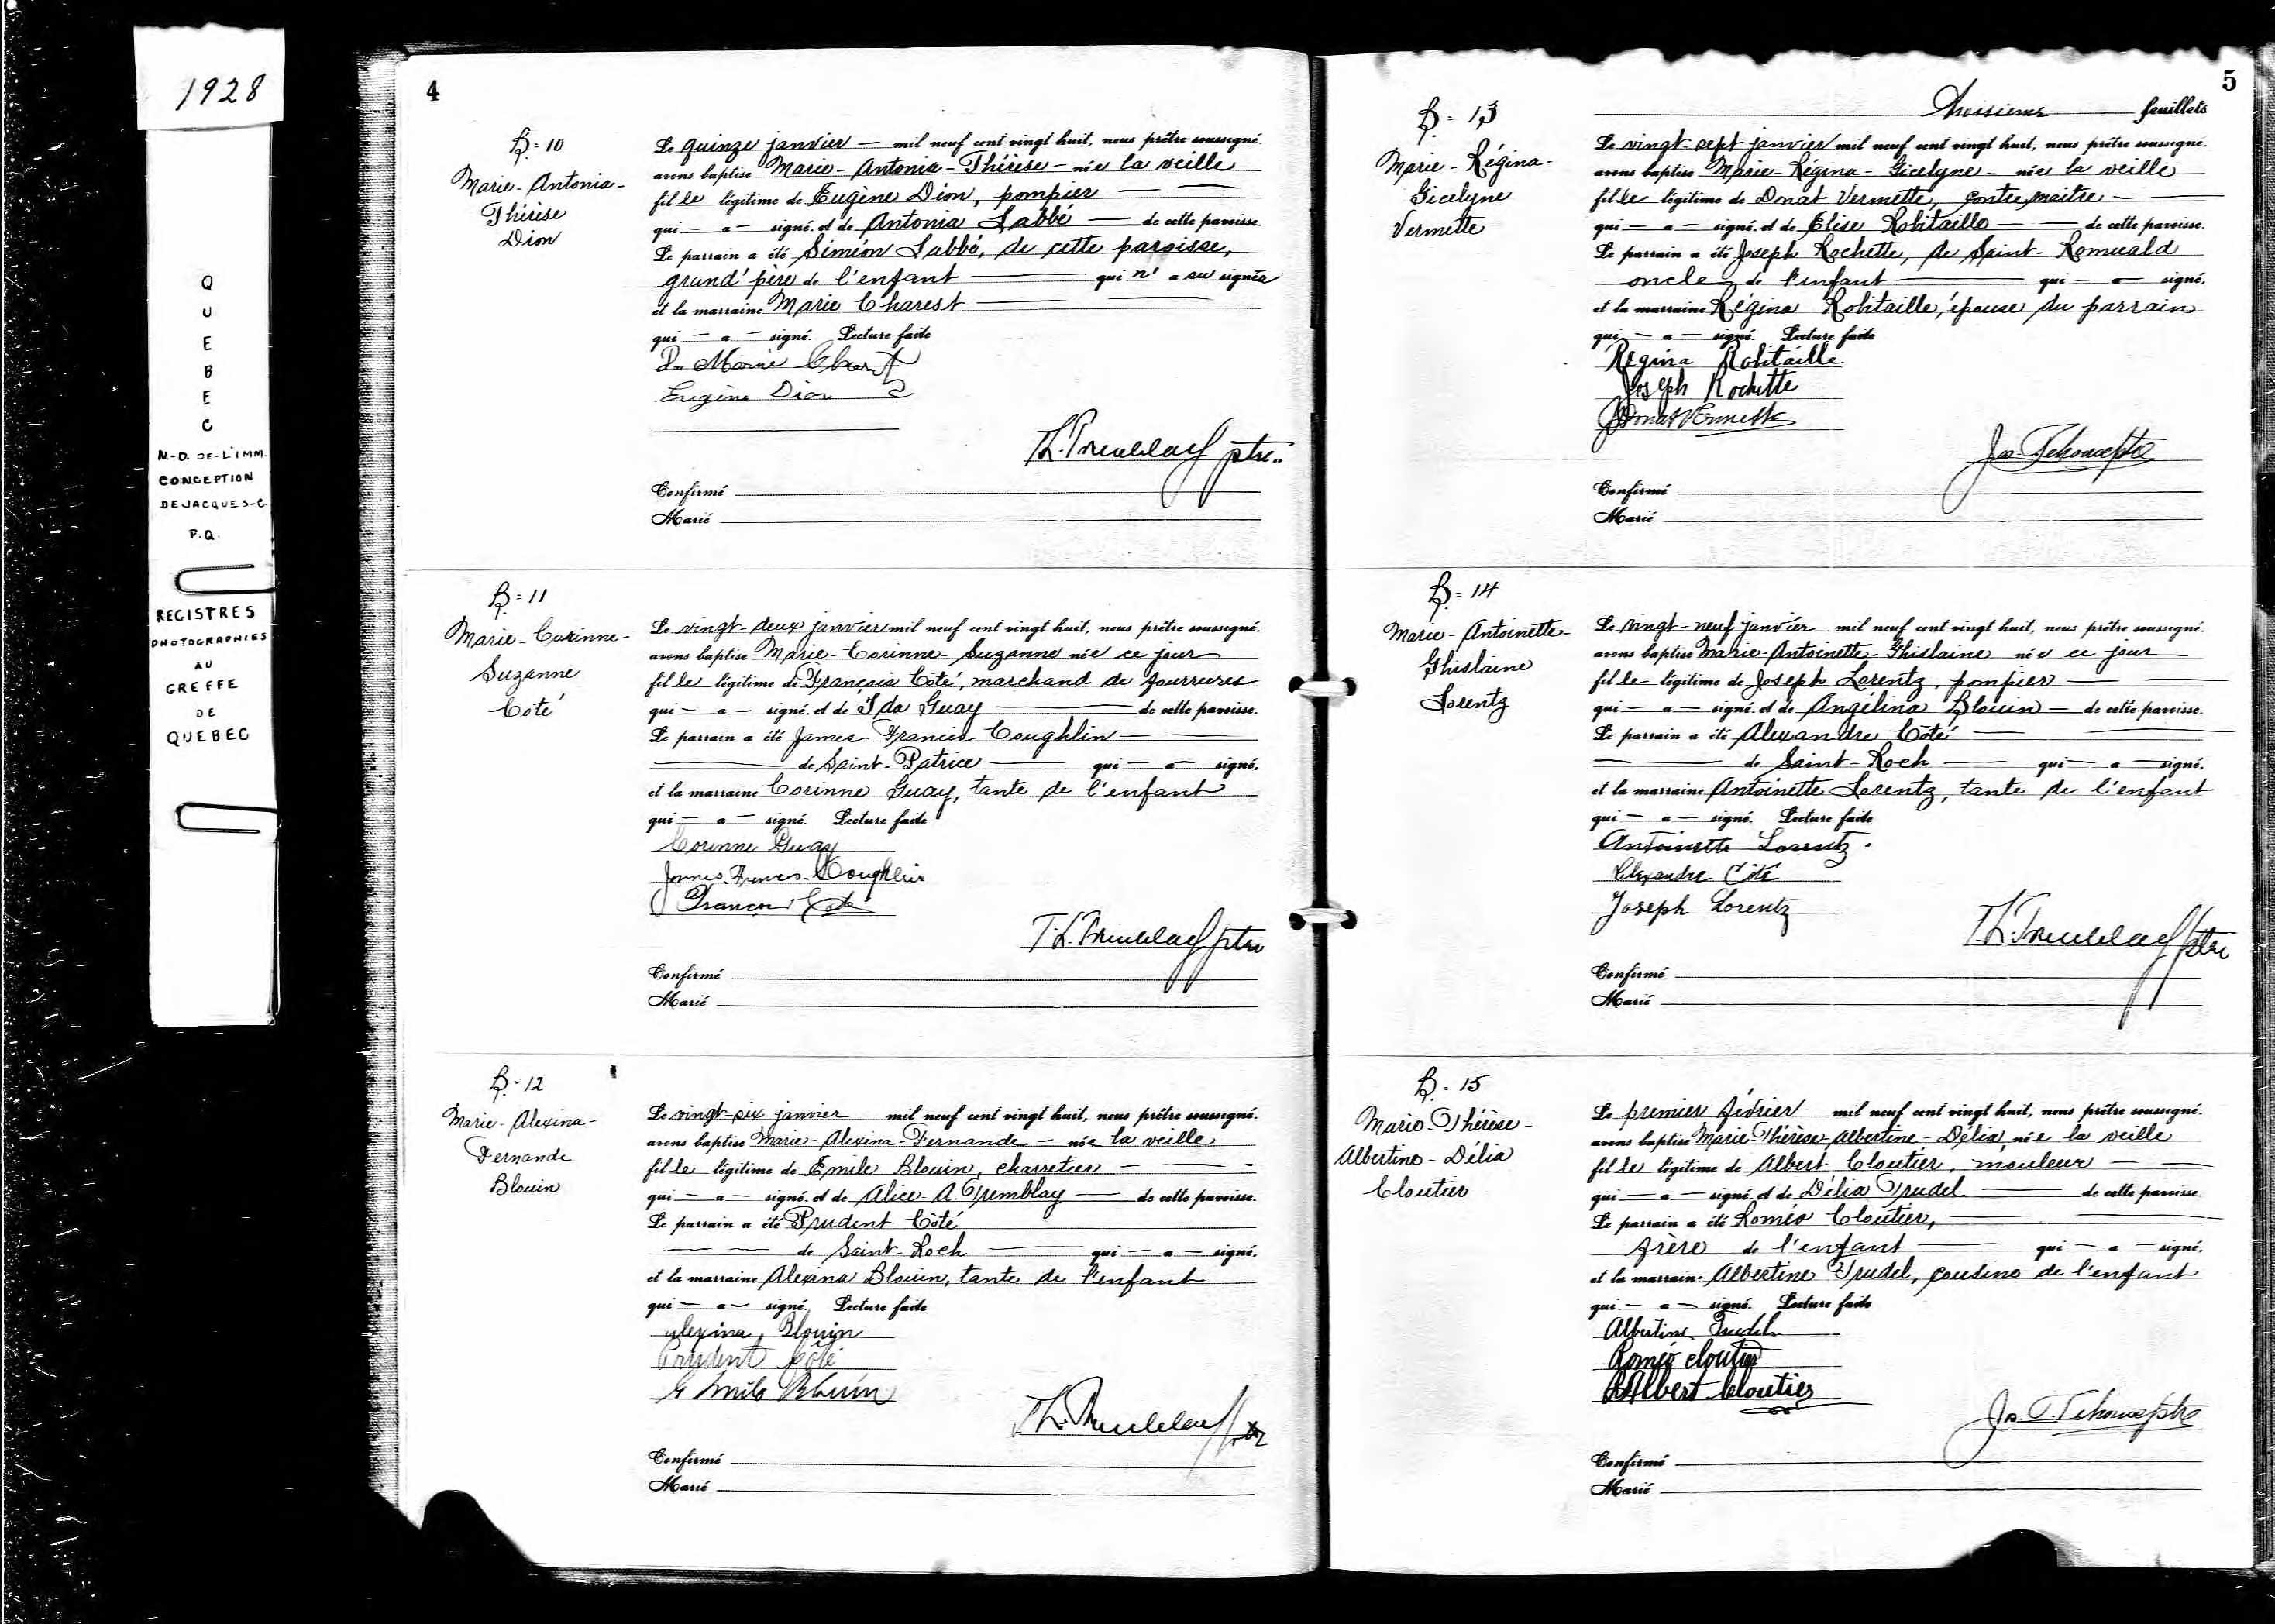 1928
QUEBEC
N-D. DE-L'IMM.
CONCEPTION
DE JACQUES-C
P.Q.
REGISTRES
PHOTOGRAPHIES
AU
GREFFE
DE
QUEBEC
4
B=10
Marie-Antonia-
Thérèse
Dion
Le quinze janvier — mil neuf cent vingt huit, nous prêtre soussigné.
avons baptisé Marie-Antonia-Thérèse - née la veille
fille légitime de Eugène Dion, pompier — —
qui — a — signé. et de Antonia Labbé — de cette paroisse.
Le parrain a été Siméon Labbé, de cette paroisse,
grand'père de l'enfant — qui n'a su signer
et la marraine Marie Charest — —
qui — a — signé. Lecture faite
Marie Charest
Eugène Dion
T.L. Tremblay ptre..
Confirmé
Marié
B=11
Marie-Corinne-
Suzanne
Coté
Le vingt-deux janvier mil neuf cent vingt huit, nous prêtre soussigné.
avons baptisé Marie-Corinne-Suzanne née ce jour
fille légitime de François Côté, marchand de fourrures
qui — a — signé. et de Ida Guay — de cette paroisse.
Le parrain a été James Francis Coughlin — —
— de Saint-Patrice — qui — a — signé.
et la marraine Corinne Guay, tante de l'enfant
qui — a — signé. Lecture faite
Corinne Guay
James Francis Coughlin
François Coté
T.L. Tremblay ptre
Confirmé
Marié
B-12
Marie-Alexina-
Fernande
Blouin
Le vingt-six janvier mil neuf cent vingt huit, nous prêtre soussigné.
avons baptisé Marie-Alexina-Fernande — née la veille
fille légitime de Emile Blouin, charretier — — -
qui — a — signé. et de Alice A. Tremblay — de cette paroisse.
Le parrain a été Prudent Côté
— — de Saint-Roch — qui — a — signé.
et la marraine Alexina Blouin, tante de l'enfant
qui — a — signé. Lecture faite
Alexina Blouin
Prudent Côté
Emile Blouin
T.L. Tremblay ptre
Confirmé
Marié
5
Troisième feuillets
B=13
Marie-Régina-
Gicelyne
Vermette
Le vingt-sept janvier mil neuf cent vingt huit, nous prêtre soussigné.
avons baptisé Marie-Régina-Gicelyne - née la veille
fille légitime de Donat Vermette, contre maître — —
qui — a — signé. et de Elise Robitaille — de cette paroisse.
Le parrain a été Joseph Rochette, de Saint-Romuald
oncle de l'enfant — qui — a — signé.
et la marraine Régina Robitaille, épouse du parrain
qui — a — signé. Lecture faite
Régina Robitaille
Joseph Rochette
Donat Vermette
Confirmé
Marié
B=14
Marie-Antoinette-
Ghislaine
Lorentz
Le vingt-neuf janvier mil neuf cent vingt huit, nous prêtre soussigné.
avons baptisé Marie-Antoinette-Ghislaine née ce jour
fille légitime de Joseph Lorentz, pompier — —
qui — a — signé. et de Angélina Blouin — de cette paroisse.
Le parrain a été Alexandre Côté — —
— — de Saint-Roch — qui — a — signé.
et la marraine Antoinette Lorentz, tante de l'enfant
qui — a — signé. Lecture faite
Antoinette Lorentz.
Alexandre Côté
Joseph Lorentz
T.L. Tremblay ptre
Confirmé
Marié
B=15
Marie-Thérèse-
Albertine-Délia
Cloutier
Le premier février mil neuf cent vingt huit, nous prêtre soussigné.
avons baptisé Marie-Thérèse-Albertine-Délia, née la veille
fille légitime de Albert Cloutier, mouleur — —
qui — a — signé. et de Délia Trudel — de cette paroisse.
Le parrain a été Roméo Cloutier, — —
frère de l'enfant — qui — a — signé.
et la marraine Albertine Trudel, cousine de l'enfant
qui — a — signé. Lecture faite
Albertine Trudel
Roméo Cloutier
Albert Cloutier
Confirmé
Marié